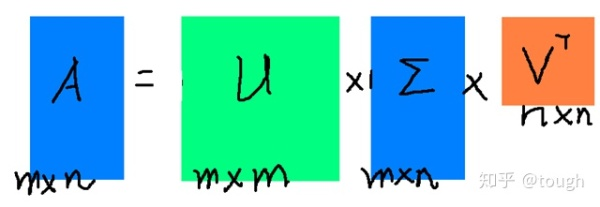 A = U × Σ × Vᵀ
m×n m×m m×n n×n
知乎 @tough